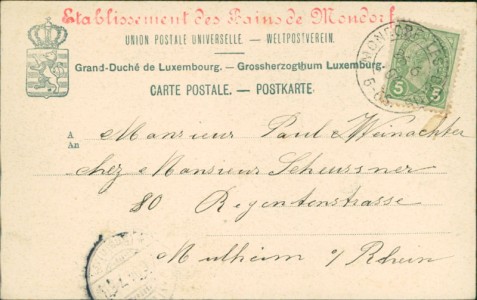 Etablissement des Bains de Mondorf
UNION POSTALE UNIVERSELLE. — WELTPOSTVEREIN.
Grand-Duché de Luxembourg. — Grossherzogthum Luxemburg.
CARTE POSTALE. — POSTKARTE.
5 5
A
An
Monsieur Paul Weinachter
chez Monsieur Scheussner
80 Regentenstrasse
Mulheim a/ Rhein